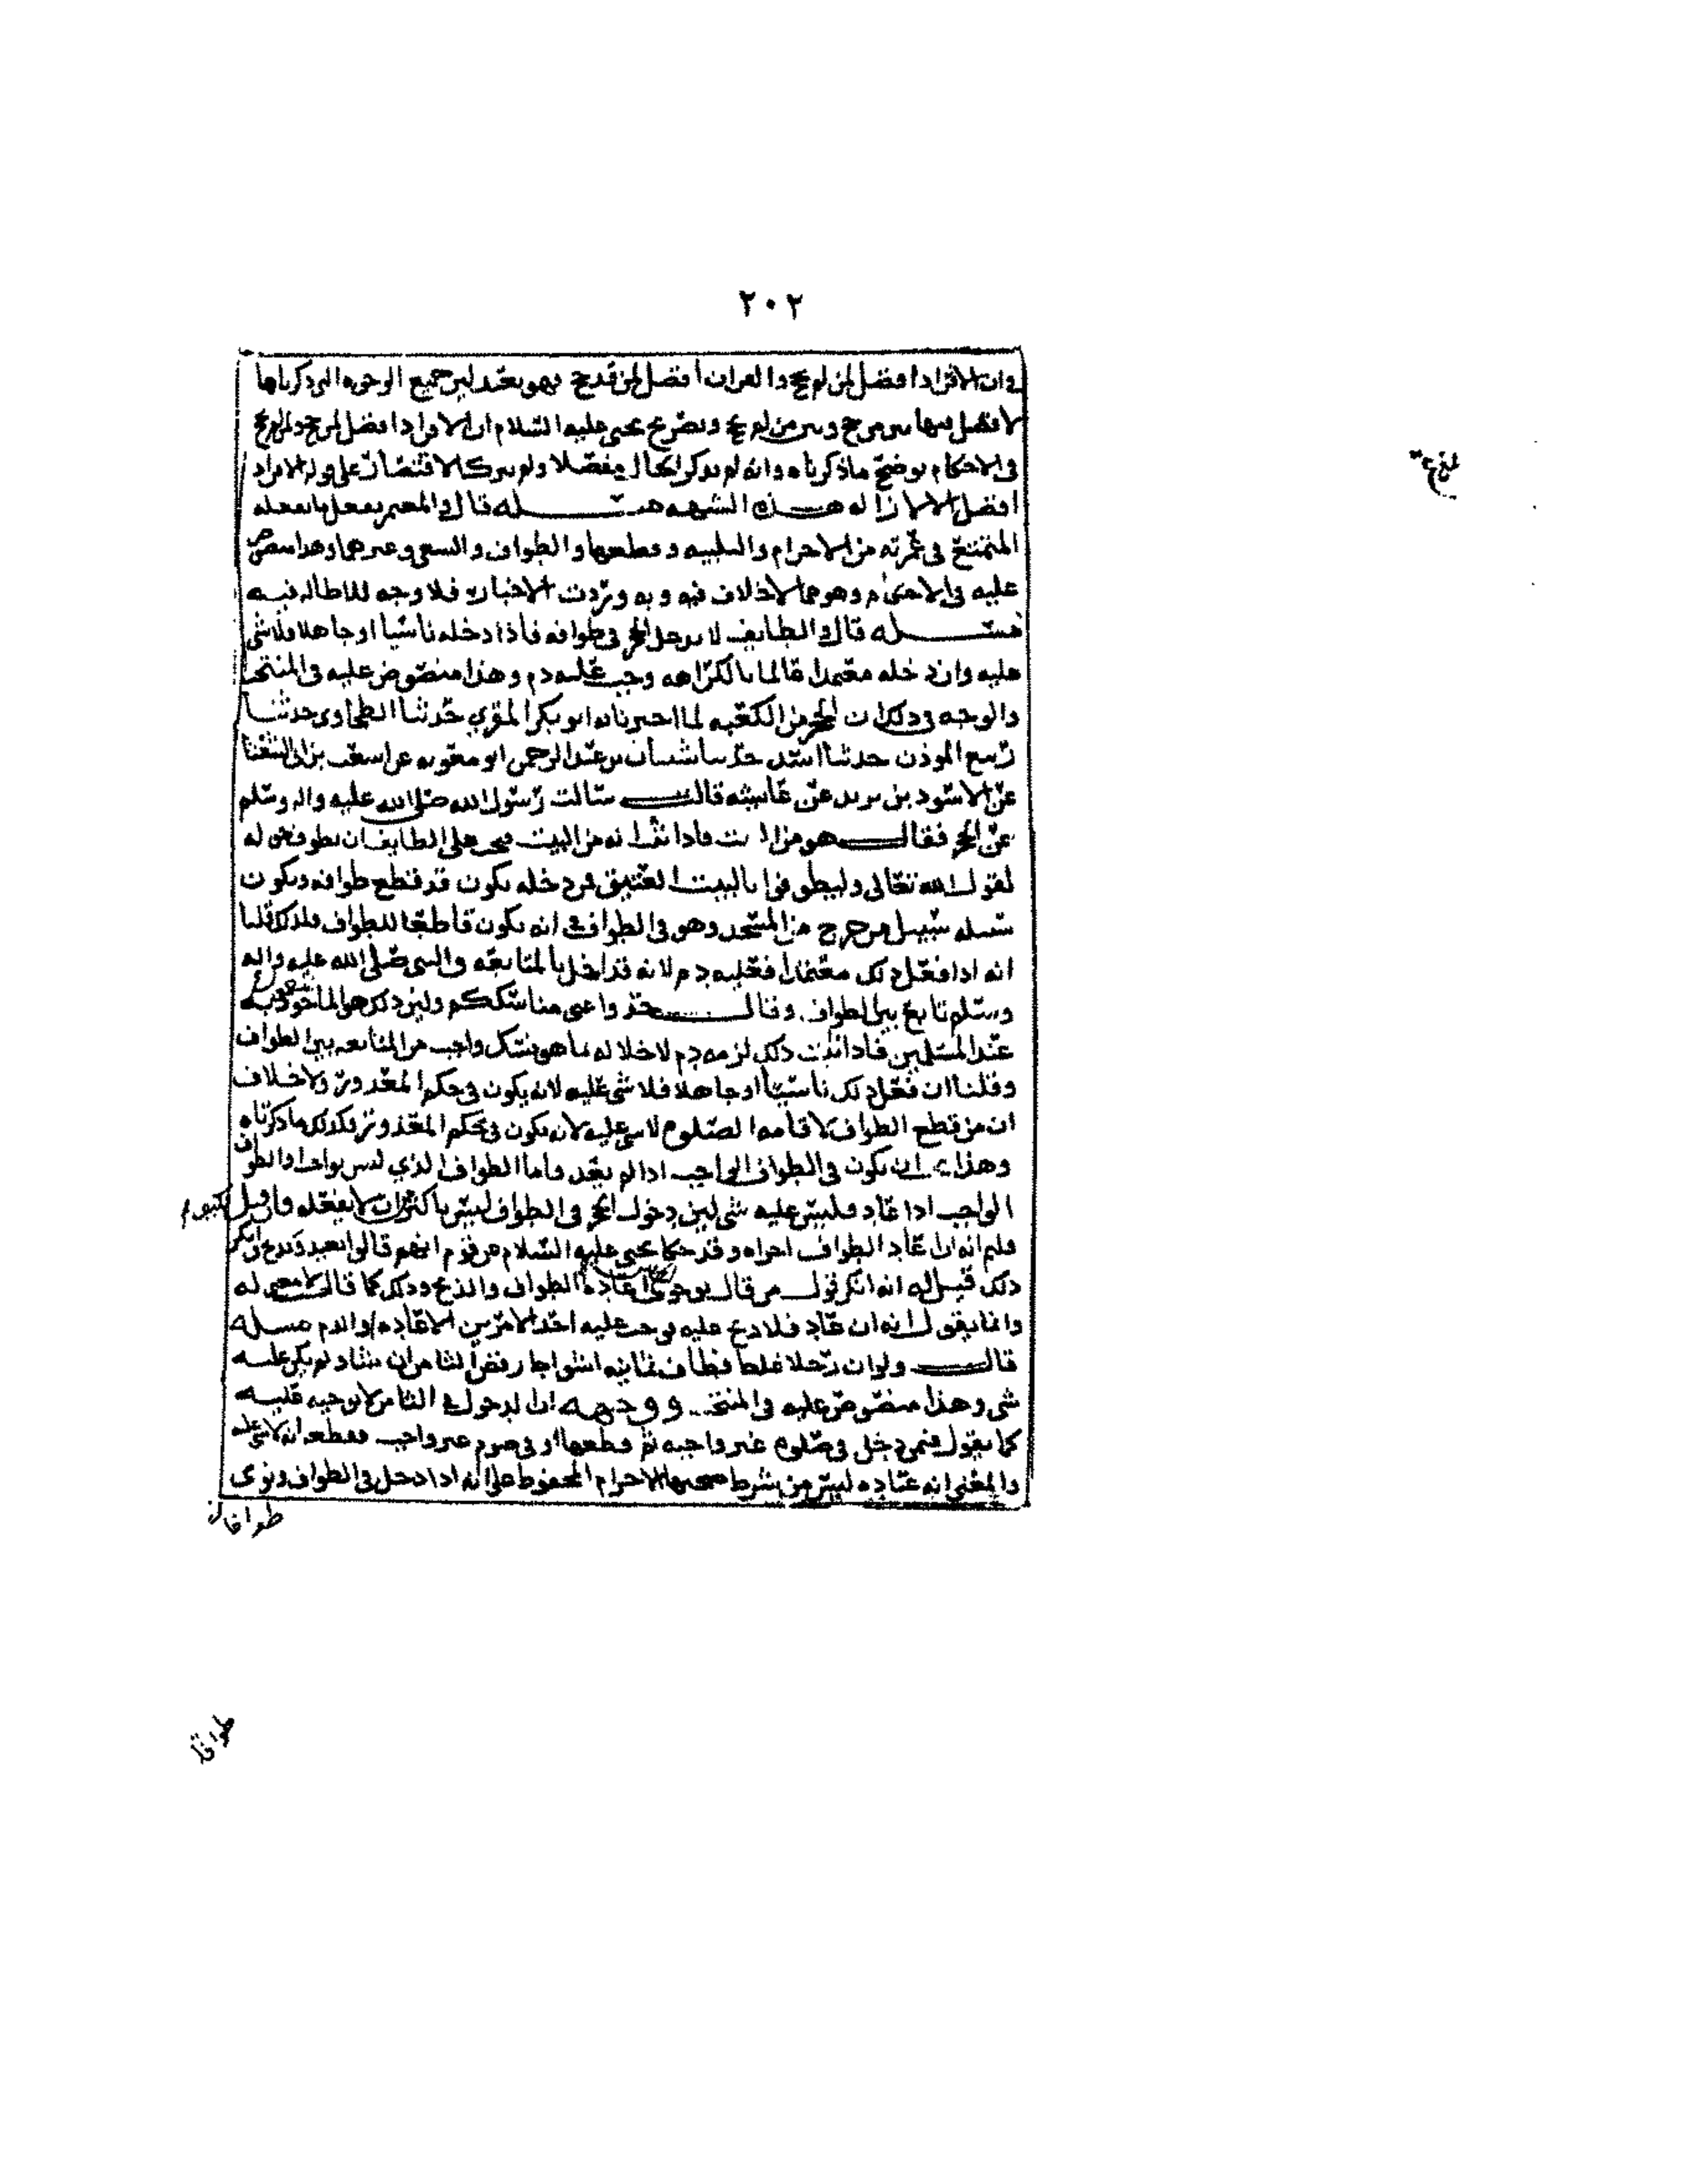 ٢٠٢
وان الافراد افضل لمن لم يحج والقران افضل لمن قد حج فهو بعيد لين جميع الوجوه التي ذكرناها
لا فصل فيها بين من حج وبين من لم يحج وتصريح يحيى عليه السلام ان الافراد افضل لمن حج ولمن لم يحج
في الاحكام يوضح ما ذكرناه وانه لم يذكر الحال مفصلا ولم يترك الاقتصار على قوله الافراد
افضل الا لازاله هذه الشبهه مسئله قال والمعتمر يفعل ما يفعله
المتمتع في عمرته من الاحرام والتلبيه وقطعها والطواف والسعي وغيرهما وهذا منصوص
عليه في الاحكام وهو مما لا خلاف فيه وبه وردت الاخبار فلا وجه للاطاله فيه
مسئله قال والطايف لا يدخل الحجر في طوافه فاذا دخله ناسيا او جاهلا فلا شي
عليه وان دخله متعمدا عالما بالكراهه وجب عليه دم وهذا منصوص عليه في المنتخب
والوجه في ذلك ان الحجر من الكعبه لما اخبرنا به ابو بكر المقري حدثنا الطحاوي حدثنا
ربيع الموذن حدثنا اسد حدثنا شيبان بن عبد الرحمن ابو معويه عن اشعث بن ابي الشعثا
عن الاسود بن يزيد عن عايشه قالت سالت رسول الله صلى الله عليه واله وسلم
عن الحجر فقال هو من البيت فاذا ثبت انه من البيت فيجب على الطايف ان يطوف من له
لقول الله تعالى وليطوفوا بالبيت العتيق فمن دخله يكون قد قطع طوافه ويكون
سبيله سبيل من خرج من المسجد وهو في الطواف في انه يكون قاطعا للطواف فلذلك قلنا
انه اذا فعل ذلك معتمدا فعليه دم لانه قد اخل بالمتابعه والنبي صلى الله عليه واله
وسلم تابع بين الطواف وقال خذوا عني مناسككم ولين ذلك هو الماخوذ به
عند المسلمين فاذا ثبت ذلك لزمه دم لاخلاله بما هو نسك واجب من المتابعه بين الطواف
وقلنا ان فعل ذلك ناسيا او جاهلا فلا شي عليه لانه يكون في حكم المعذور ولا خلاف
ان من قطع الطواف لاقامه الصلوه لا شي عليه لانه يكون في حكم المعذور فكذلك ما ذكرناه
وهذا يجب ان يكون في الطواف الواجب اذا لم يعد واما الطواف الذي ليس بواجب او الطواف
الواجب اذا عاد فليس عليه شي لين دخول الحجر في الطواف ليس باكثر من ان لا يفعله فان قيل
فلم انه ان عاد الطواف اجزاه وقد حكا يحيى عليه السلام عن قوم انهم قالوا يعيد ويذبح وانكر
ذلك قيل له انه انكر قول من قال بوجوب اعاده الطواف والذبح وذلك كما قال لا معنى له
وانما يقول انه ان عاد فلا دم عليه فيجب عليه احد الامرين الاعاده او الدم مسله
قال ولو ان رجلا غلط فطاف ثمانيه اشواط رفض الثامن ان شا ولم يكن عليه
شي وهذا منصوص عليه في المنتخب ووجهه ان الدخول في الثامن لا يوجبه عليه
كما يقول فيمن دخل في صلوه غير واجبه ثم قطعها او في صوم غير واجب فقطعه انه لا شي عليه
والمعنى انه عباده ليس من شرط صحتها الاحرام المحفوظ على انه اذا دخل في الطواف ونوى
طوافا
طوافا